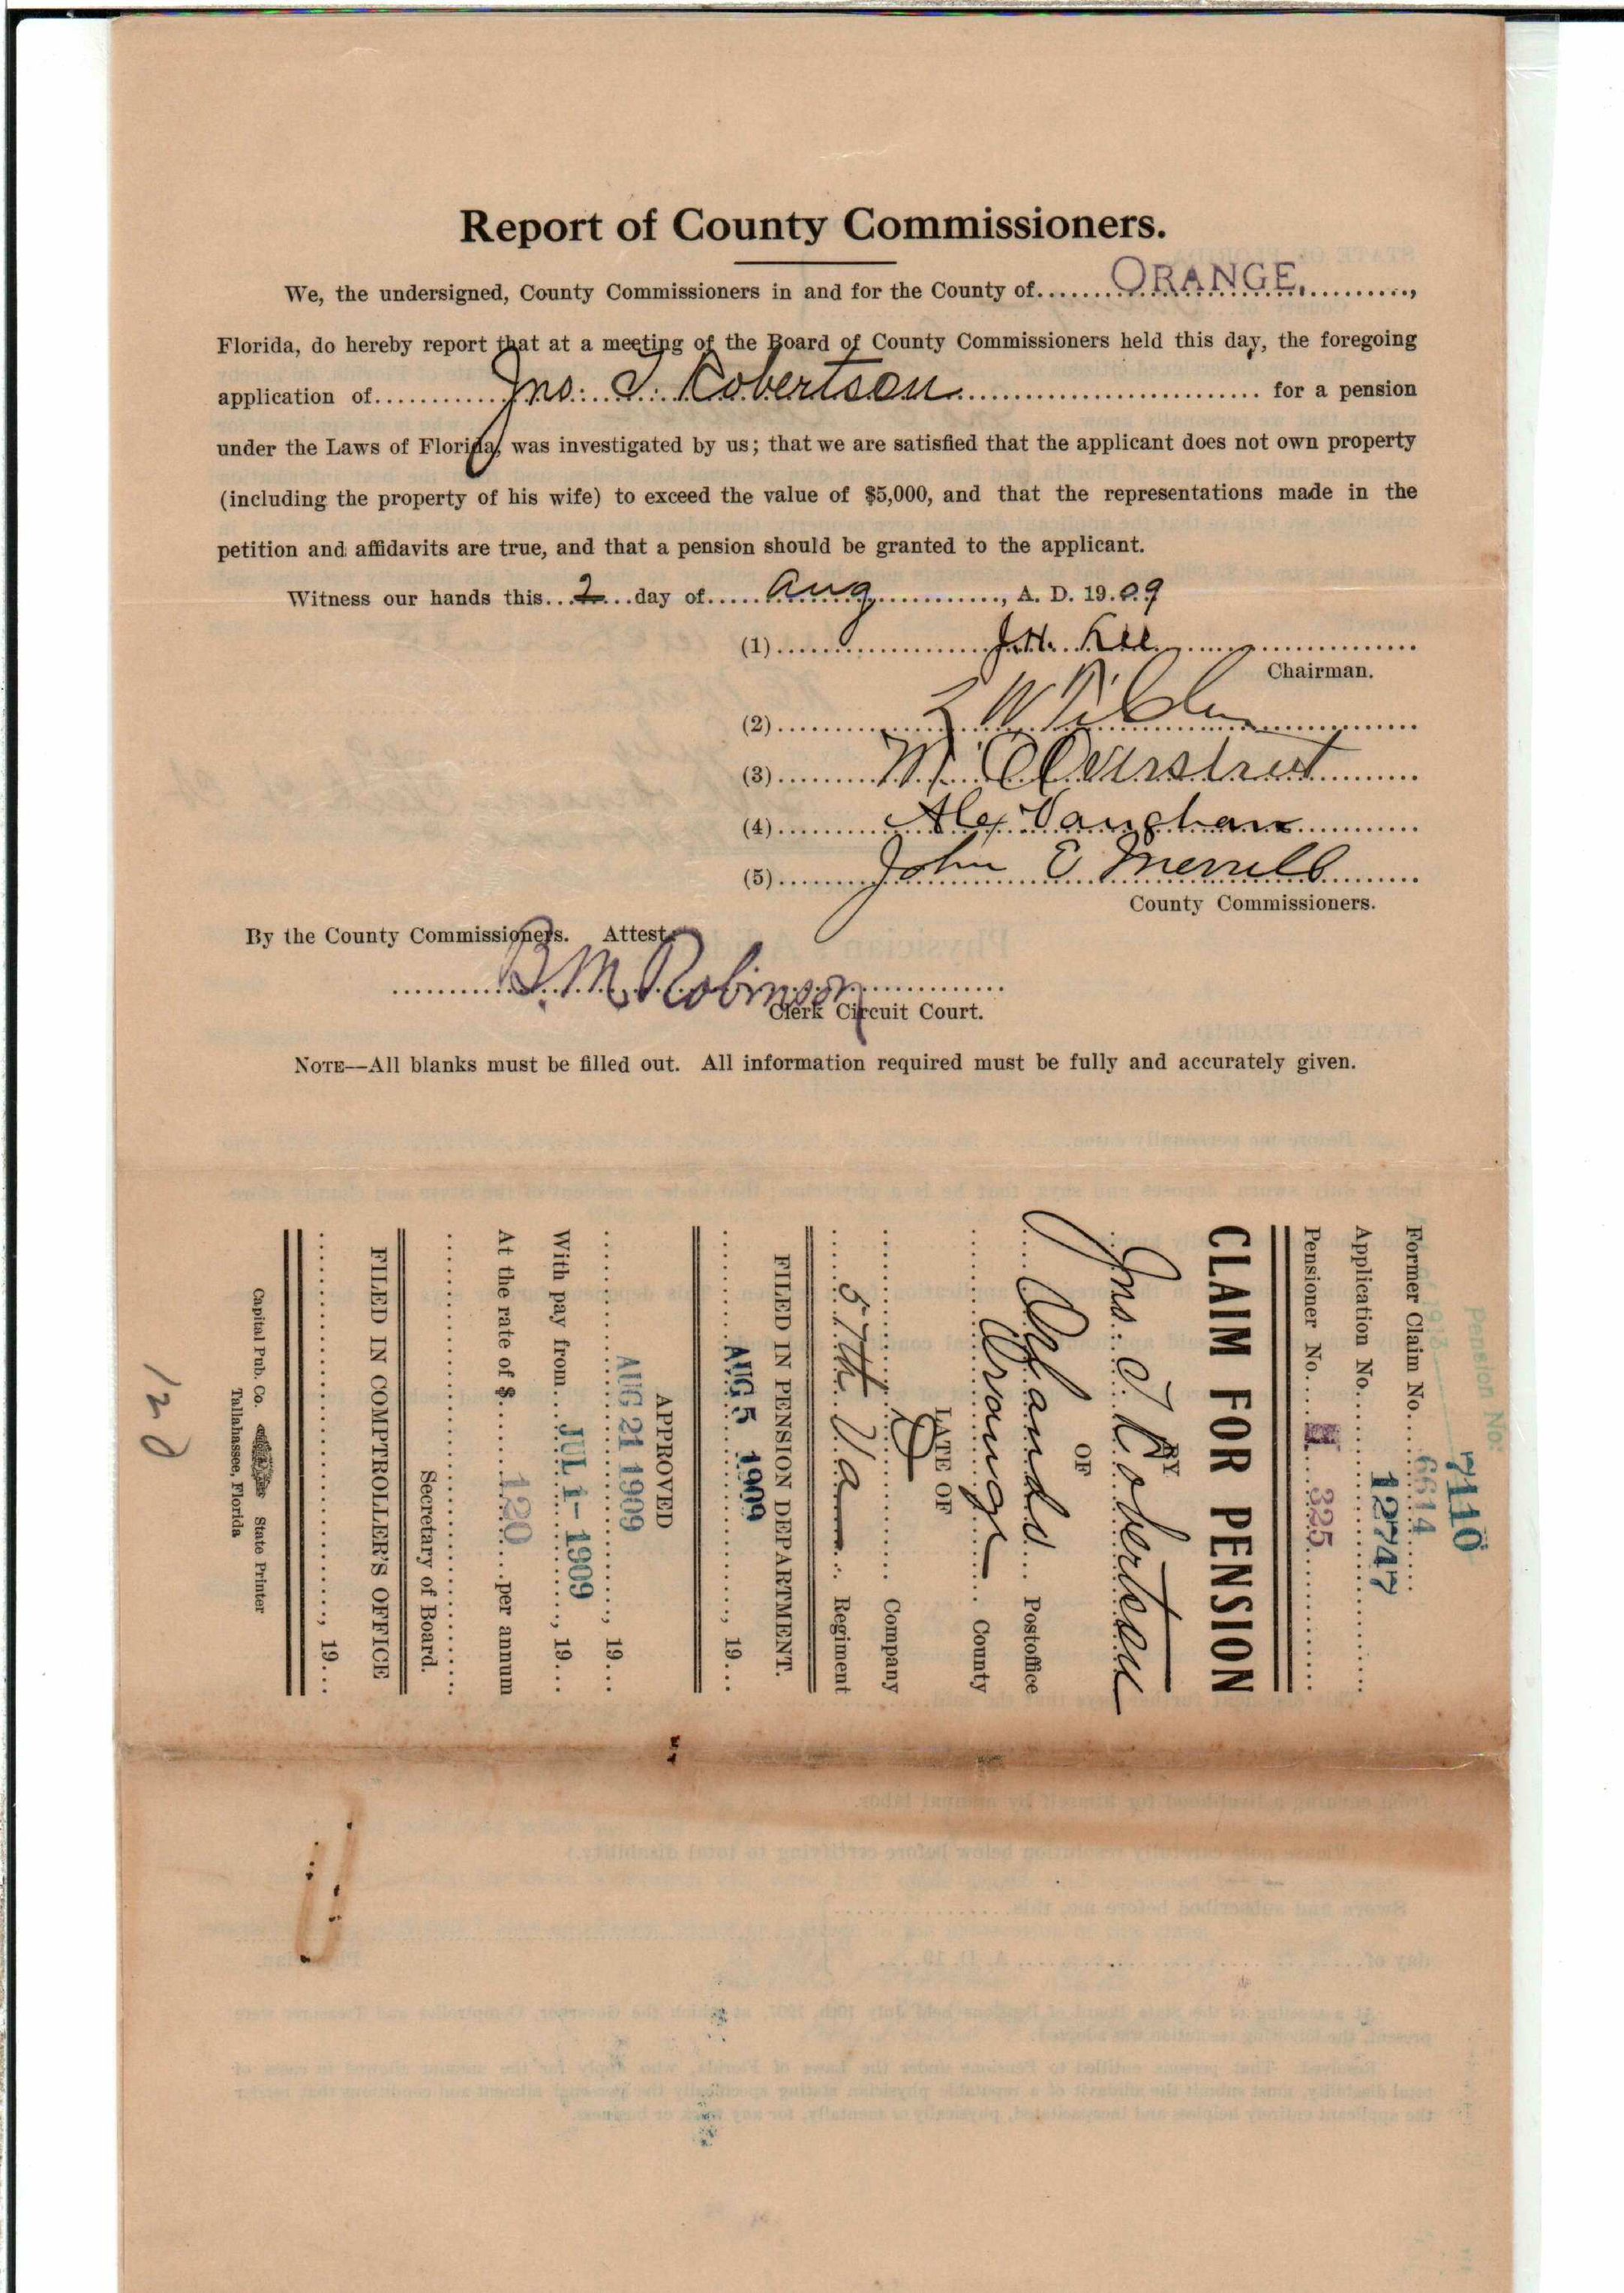 Report of County Commissioners.
We, the undersigned, County Commissioners in and for the County of ORANGE,
Florida, do hereby report that at a meeting of the Board of County Commissioners held this day, the foregoing
application of Jno. T. Robertson for a pension
under the Laws of Florida, was investigated by us; that we are satisfied that the applicant does not own property
(including the property of his wife) to exceed the value of $5,000, and that the representations made in the
petition and affidavits are true, and that a pension should be granted to the applicant.
Witness our hands this 2 day of Aug, A. D. 1909
(1) J.H. Lee
Chairman.
(2) L W Tilden
(3) M. O Overstreet
(4) Alex Vaughan
(5) John E Merrill
County Commissioners.
By the County Commissioners. Attest
B. M. Robinson
Clerk Circuit Court.
NOTE—All blanks must be filled out. All information required must be fully and accurately given.
Pension No:
7110
Former Claim No. 6614
Application No. 12747
Pensioner No. 325
CLAIM FOR PENSION
BY
Jno. T Robertson
OF
Orlando Postoffice
Orange County
LATE OF
Company
57th Va Regiment
FILED IN PENSION DEPARTMENT.
AUG 5 1909, 19
APPROVED
AUG 21 1909, 19
With pay from JUL 1- 1909, 19
At the rate of $ 120 per annum
Secretary of Board.
FILED IN COMPTROLLER'S OFFICE
, 19
Capital Pub. Co. State Printer
Tallahassee, Florida